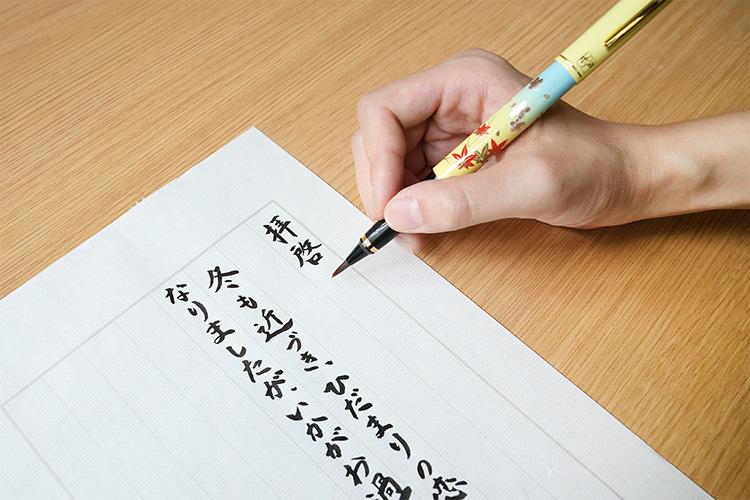 拝啓
冬も近づき、ひだまりの恋
なりましたが、いかがお過